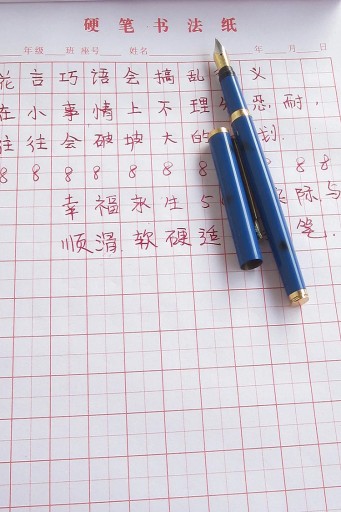 硬笔书法纸
年级 班 座号 姓名 年 月 日
能言巧语会搞乱 义
在小事情上不理 忍,耐,
往往会破坡大的 划.
8 8 8 8 8 8 8 8 8
幸福永生 5 实际与
顺滑.软硬适 笔.